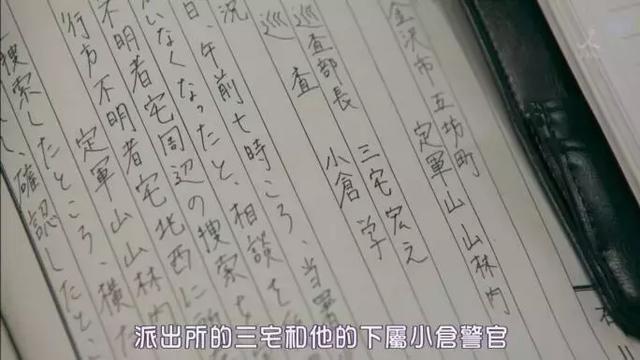 金沢市五坊町
定軍山 山林内
巡査部長 三宅宏之
巡査 小倉学
況
日、午前七時ころ、当署
いなくなったと、相談を
不明者宅周辺の捜索を
行方不明者宅北西に
定軍山山林内
捜索したところ、横た
確認したと、
派出所的三宅和他的下屬小倉警官